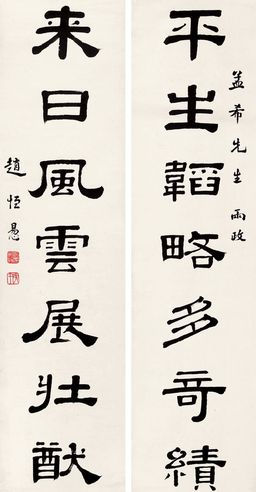 孟希先生雨政
平生韜略多竒績
来日風雲展壯猷
趙恒惖